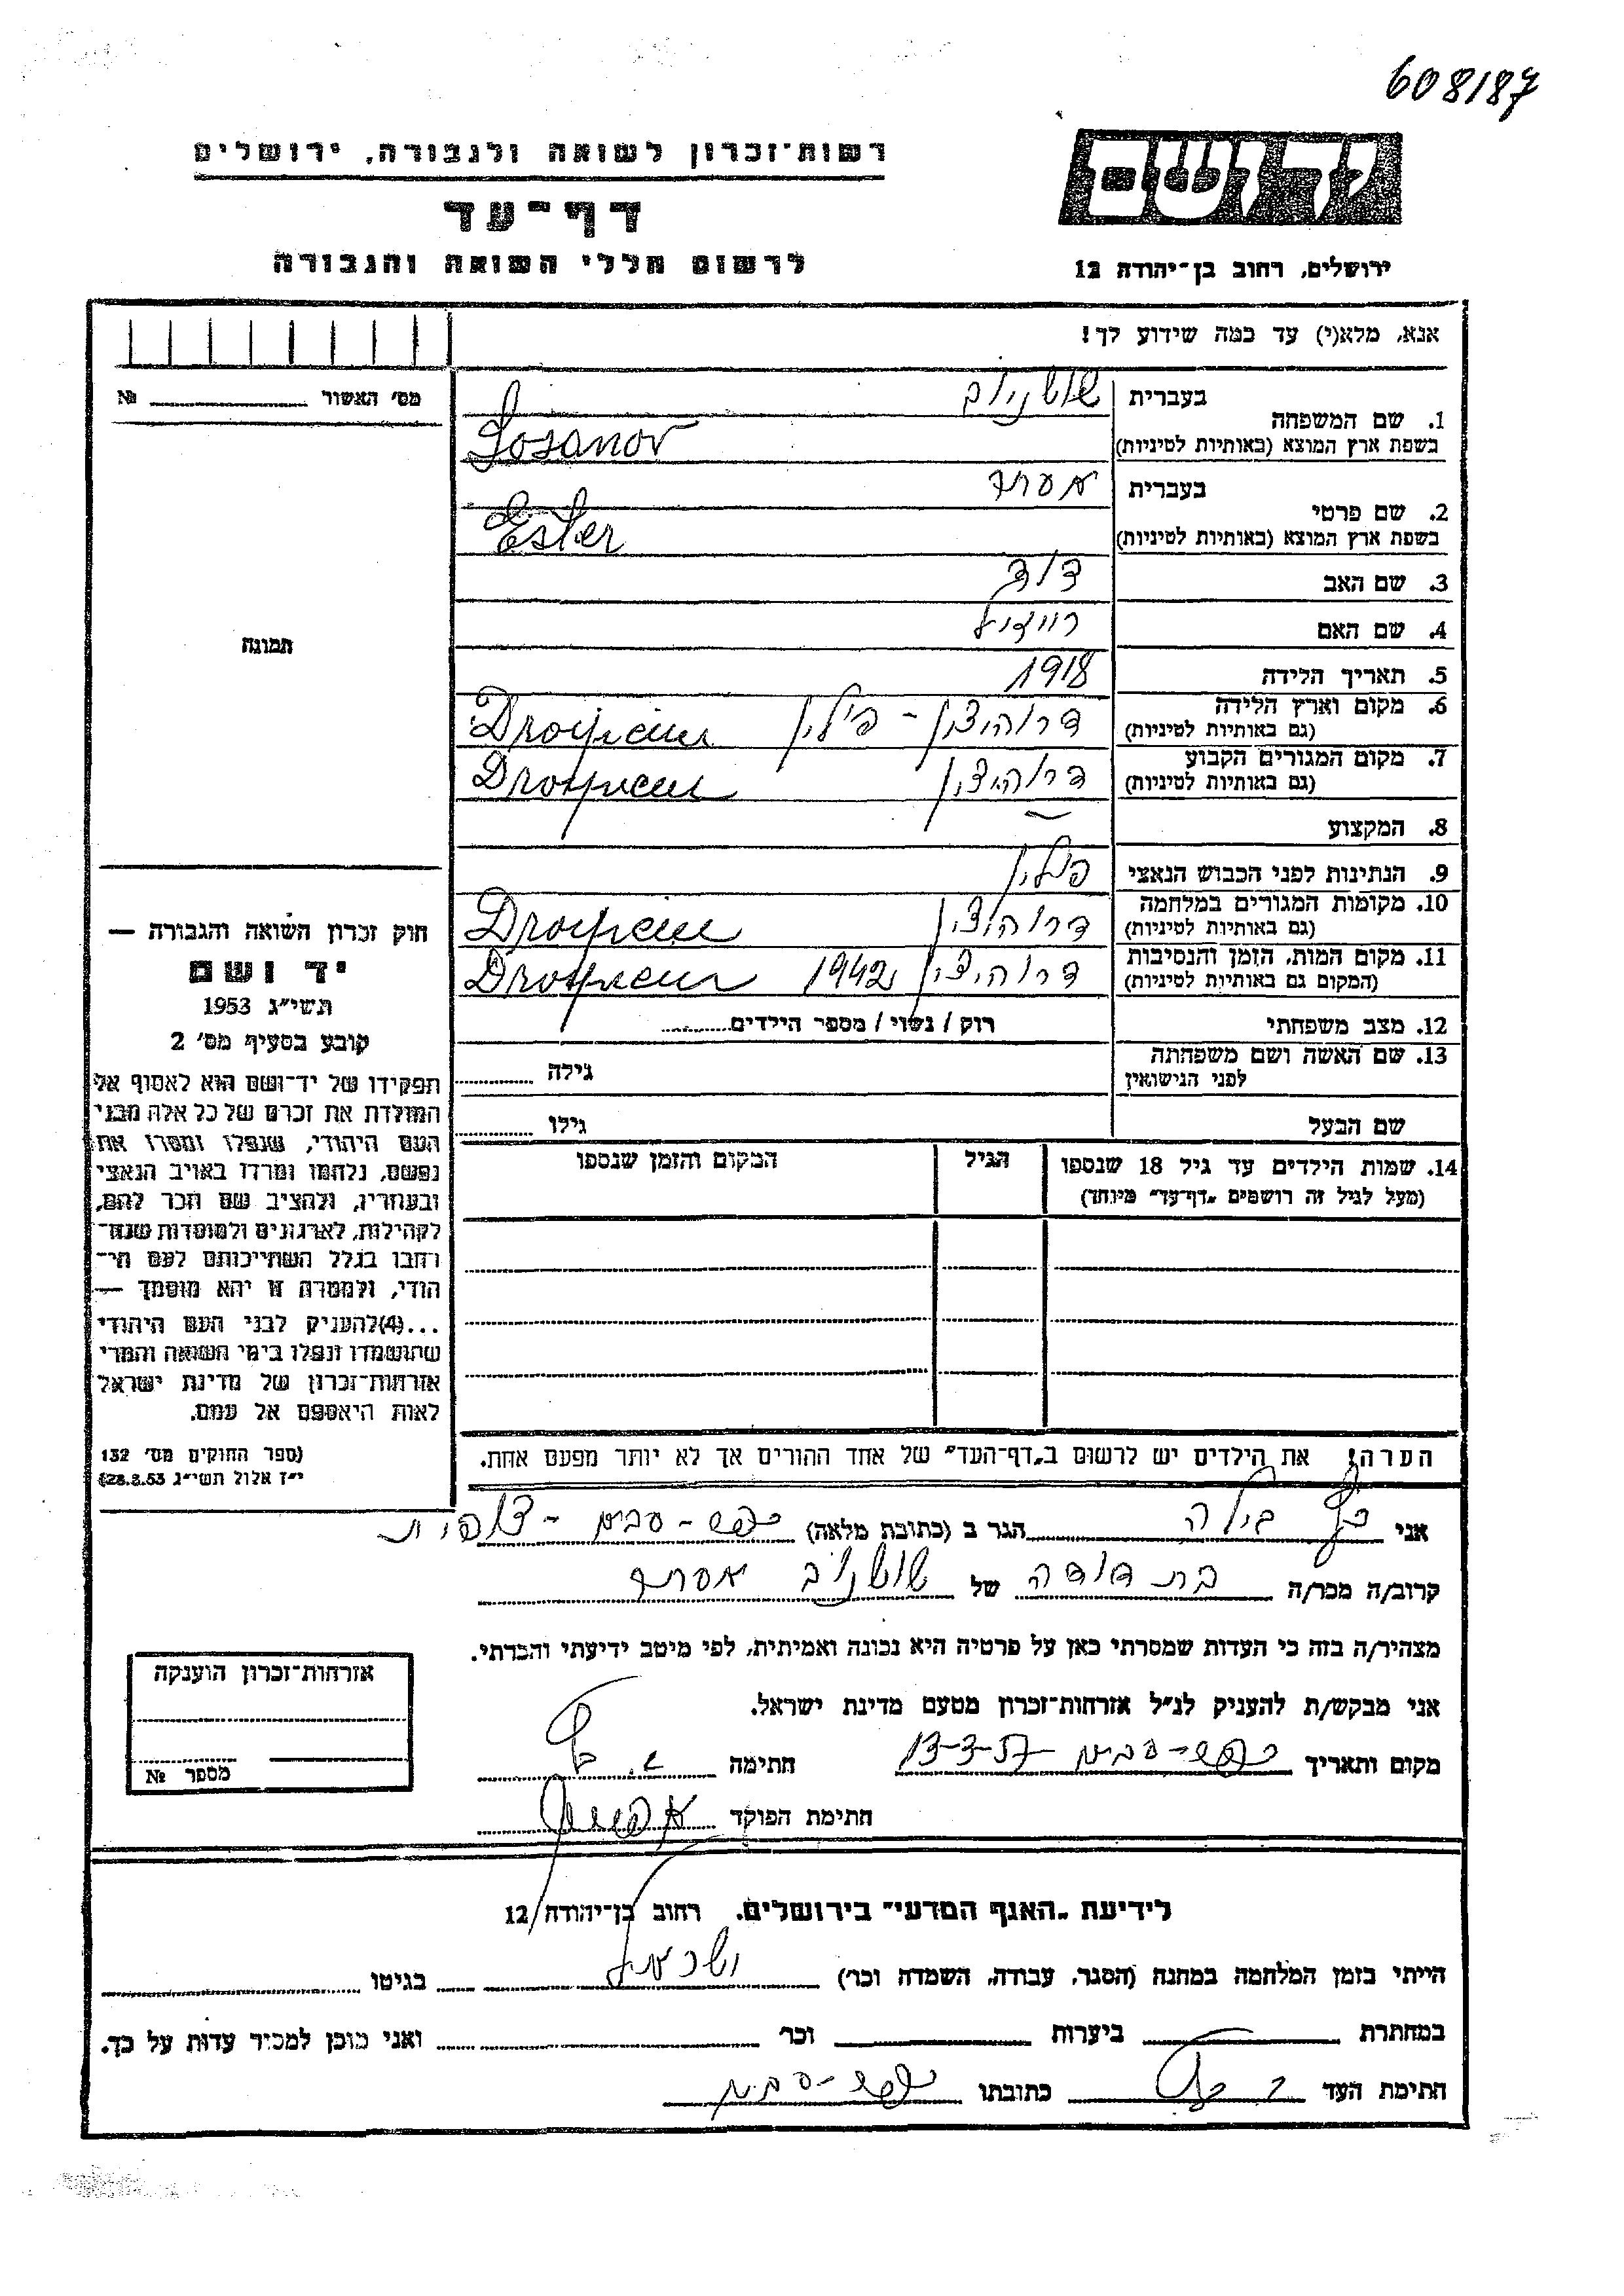 608187
רשות־זכרון לשואה ולגבורה, ירושלים
יד ושם
דף־עד
לרשום חללי השואה והגבורה
ירושלים, רחוב בן־יהודה 12
אנא, מלא(י) עד כמה שידוע לך!
מס׳ האשור № 
1. שם המשפחה בעברית
בשפת ארץ המוצא (באותיות לטיניות) Sosanov
2. שם פרטי בעברית אסתר
בשפת ארץ המוצא (באותיות לטיניות) Ester
3. שם האב דוד
4. שם האם
5. תאריך הלידה 1918
6. מקום וארץ הלידה
(גם באותיות לטיניות) דרוהיצין - פולין
7. מקום המגורים הקבוע
(גם באותיות לטיניות) דרוהיצין
8. המקצוע —
9. הנתינות לפני הכבוש הנאצי פולין
10. מקומות המגורים במלחמה
(גם באותיות לטיניות) דרוהיצין
11. מקום המות, הזמן והנסיבות
(המקום גם באותיות לטיניות) דרוהיצין 1942
12. מצב משפחתי רווק / נשוי / מספר הילדים
13. שם האשה ושם משפחתה
לפני הנישואין גילה
שם הבעל גילו
14. שמות הילדים עד גיל 18 שנספו
(מעל לגיל זה רושמים „דף־עד״ מיוחד)
הגיל
המקום והזמן שנספו
תמונה
חוק זכרון השואה והגבורה —
יד ושם
תשי״ג 1953
קובע בסעיף מס׳ 2
תפקידו של יד־ושם הוא לאסוף אל
המולדת את זכרם של כל אלה מבני
העם היהודי, שנפלו ומסרו את
נפשם, נלחמו ומרדו באויב הנאצי
ובעוזריו, ולהציב שם וזכר להם,
לקהילות, לארגונים ולמוסדות שנח־
רבו בגלל השתייכותם לעם הי־
הודי, ולמטרה זו יהא מוסמך —
...(4) להעניק לבני העם היהודי
שהושמדו ונפלו בימי השואה והמרי
אזרחות־זכרון של מדינת ישראל
לאות היאספם אל עמם.
(ספר החוקים מס׳ 132
י״ז אלול תשי״ג 28.8.53)
הערה! את הילדים יש לרשום ב„דף־העד״ של אחד ההורים אך לא יותר מפעם אחת.
אני הגר ב (כתובת מלאה)
קרוב/ה מכר/ה בת דודה של אסתר
מצהיר/ה בזה כי העדות שמסרתי כאן על פרטיה היא נכונה ואמיתית, לפי מיטב ידיעתי והכרתי.
אני מבקש/ת להעניק לנ״ל אזרחות־זכרון מטעם מדינת ישראל.
מקום ותאריך 13-3-57 חתימה
חתימת הפוקד
אזרחות־זכרון הוענקה
מספר №
לידיעת „האגף המדעי״ בירושלים, רחוב בן־יהודה 12
הייתי בזמן המלחמה במחנה (הסגר, עבודה, השמדה וכו׳) בגיטו
במחתרת ביערות וכו׳ ואני מוכן למסור עדות על כך.
חתימת העד כתובתו